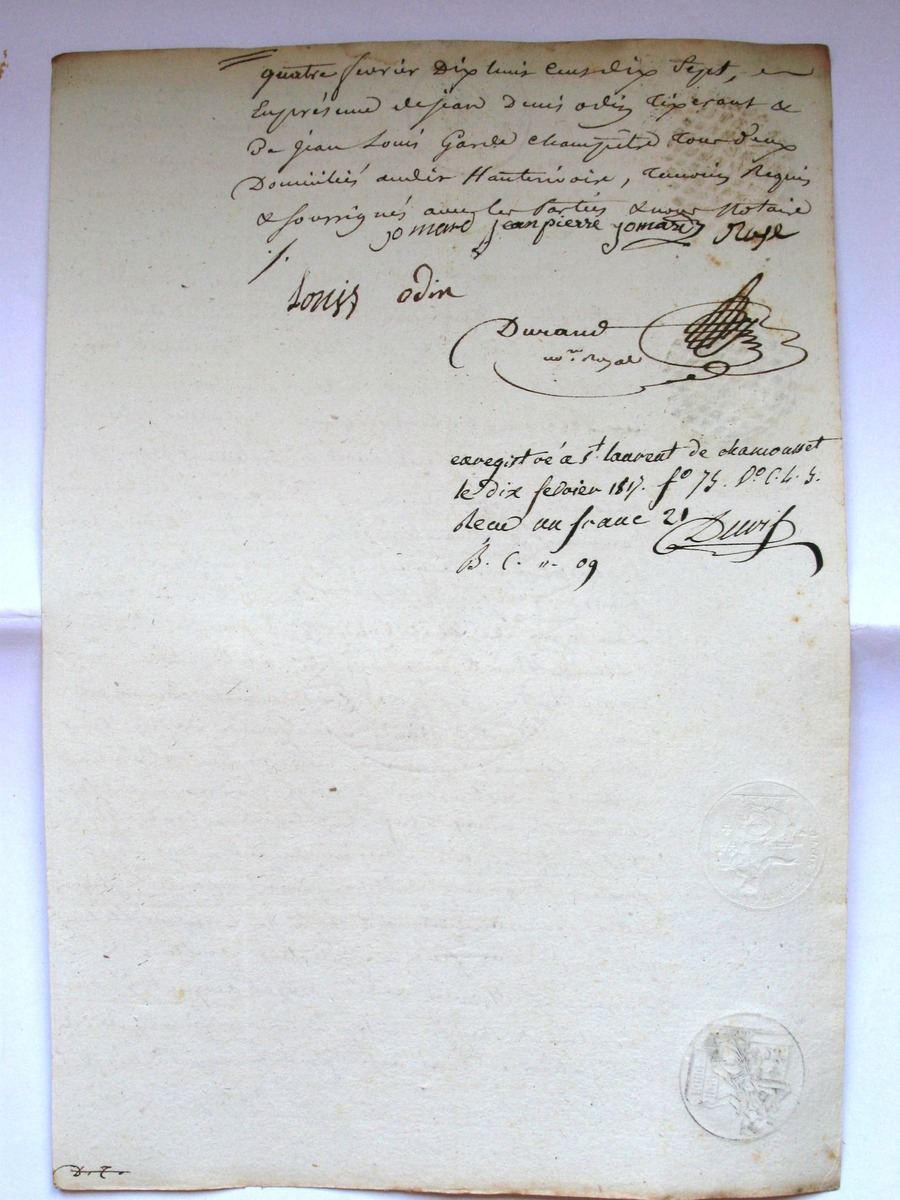 quatre fevrier Dix huit Cent dix Sept, en
En présence de jean denis odin Tixerant &
De jean Louis Garde champêtre Tous deux
Domiciliés audit Hauterivoire, temoins Requis
& soussignés avec les Parties & nous Notaire
jomard jeanpierre jomard
Louis odin
Durand
no.re Royal
enregistré à st. laurent de chamousset
le dix fevrier 1817. fo 75. Vo C. 4. 5.
Recu un franc
B. C. 11. 09